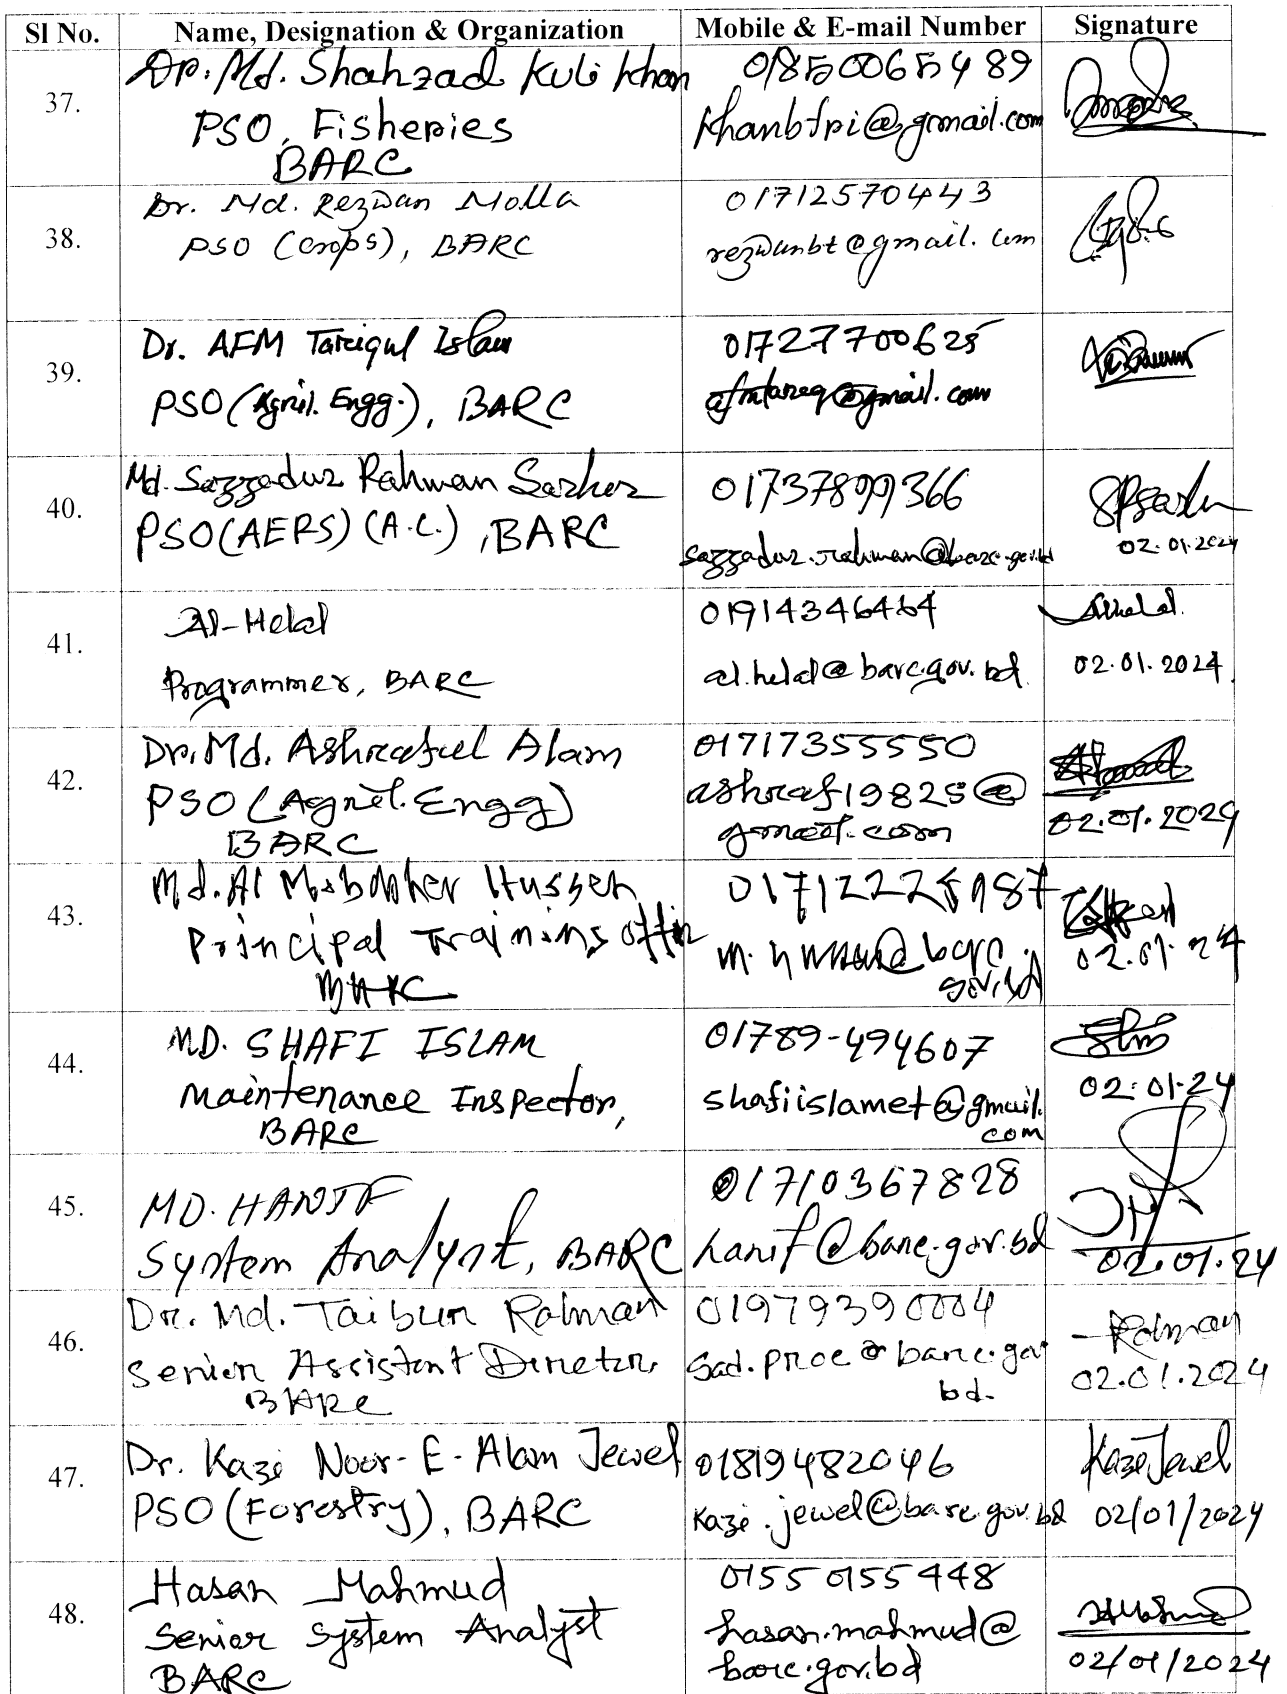 Sl No. Name, Designation & Organization Mobile & E-mail Number Signature
37.
Dr. Md. Shahzad Kuli Khan
PSO, Fisheries
BARC
01850065489
khanbfri@gmail.com
38.
Dr. Md. Rezwan Molla
PSO (crops), BARC
01712570443
rezwanbt@gmail.com
39.
Dr. AFM Tariqul Islam
PSO (Agril. Engg.), BARC
01727700625
afmtareq@gmail.com
40.
Md. Sazzadur Rahman Sarker
PSO (AERS) (A.C.), BARC
01737899366
sazzadur.rahman@barc.gov.bd
02.01.2024
41.
Al-Helal
Programmer, BARC
01914346464
al.helal@barc.gov.bd
Alhelal
02.01.2024
42.
Dr. Md. Ashraful Alam
PSO (Agril. Engg)
BARC
01717355550
ashraf19825@
gmail.com
02.01.2024
43.
Md. Al Hussen
Principal Training
BARC
barc.
gov.bd
02.01.24
44.
MD. SHAFI ISLAM
Maintenance Inspector,
BARC
01789-494607
shafiislamet@gmail.
com
02.01.24
45.
MD. HANIF
System Analyst, BARC
01710367828
hanif@barc.gov.bd
02.01.24
46.
Dr. Md. Taibur Rahman
Senior Assistant Director,
BARC
01979390004
sad.proc@barc.gov
bd.
Rahman
02.01.2024
47.
Dr. Kazi Noor-E-Alam Jewel
PSO (Forestry), BARC
01819482046
kazi.jewel@barc.gov.bd
Kazi Jewel
02/01/2024
48.
Hasan Mahmud
Senior System Analyst
BARC
01550155448
hasan.mahmud@
barc.gov.bd
02/01/2024